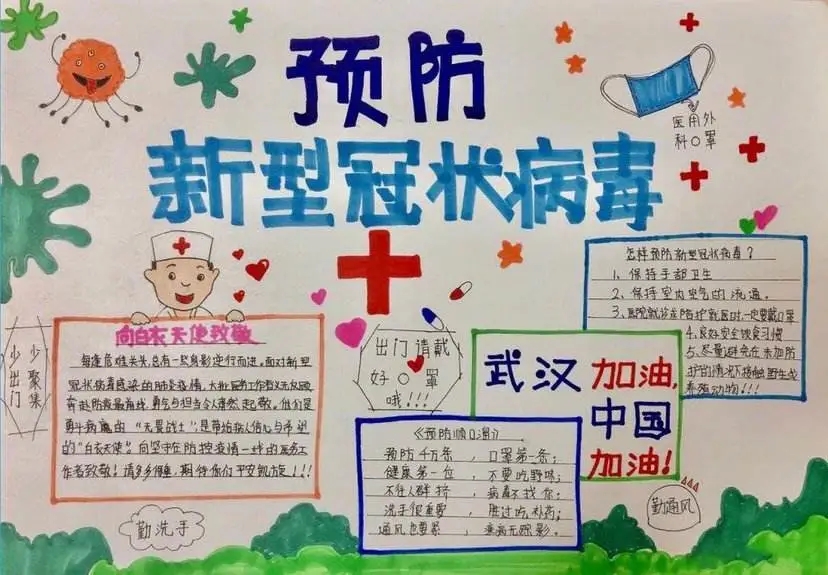 预防
新型冠状病毒
医用外
科口罩
向白衣天使致敬
每逢危难关头,总有一些身影逆行而进。面对新型
冠状病毒感染的肺炎疫情,大批医务工作者义无反顾
奔赴防疫最前线,勇气与担当令人肃然起敬。他们是
勇斗病魔的“无畏战士”,是带给病人信心与希望
的“白衣天使”。向坚守在防控疫情一线的医务工
作者致敬!请多多保重,期待你们平安凯旋!!!
少聚集
少出门
出门请戴
好口罩
哦!!!
怎样预防新型冠状病毒?
1、保持手部卫生
2、保持室内空气的流通。
3、医院就诊或陪护就医时一定要戴口罩
4、良好安全饮食习惯
5、尽量避免在未加防
护的情况下接触野生或
养殖动物!!!
武汉加油,
中国
加油!
《预防顺口溜》
预防千万条,口罩第一条;
健康第一位,不要吃野味;
不往人群挤,病毒不找你;
洗手很重要,胜过吃补药;
通风也要紧,疾病无踪影。
勤洗手
勤通风